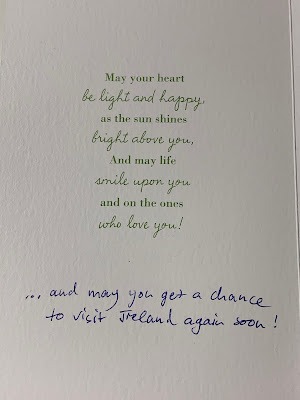 May your heart
be light and happy,
as the sun shines
bright above you,
And may life
smile upon you
and on the ones
who love you!
... and may you get a chance
to visit Ireland again soon!